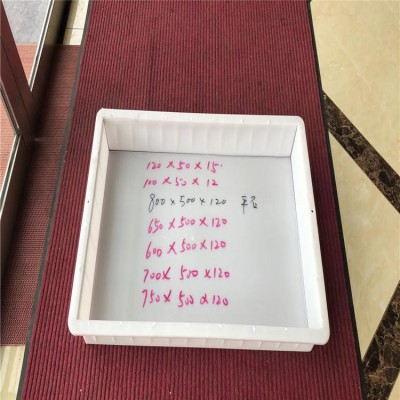 120×50×15
100×50×12
800×500×120 平立
650×500×120
600×500×120
700× 500×120
750× 500×120